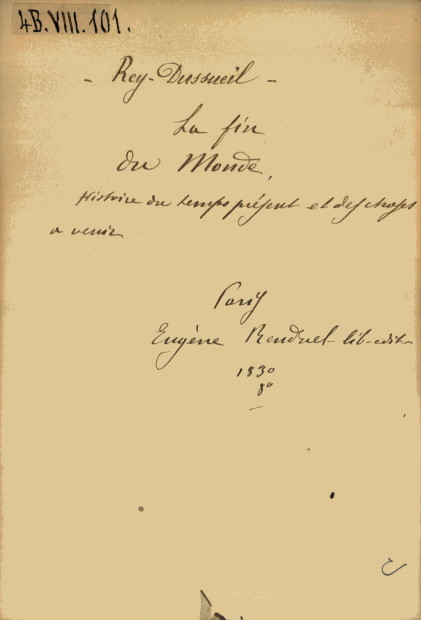 4B.VIII.101.
- Rey-Dussueil -
La fin
du Monde,
Histoire du temps présent et des choses
a venir
Paris
Eugène Renduel lib-edit-
1830
8°